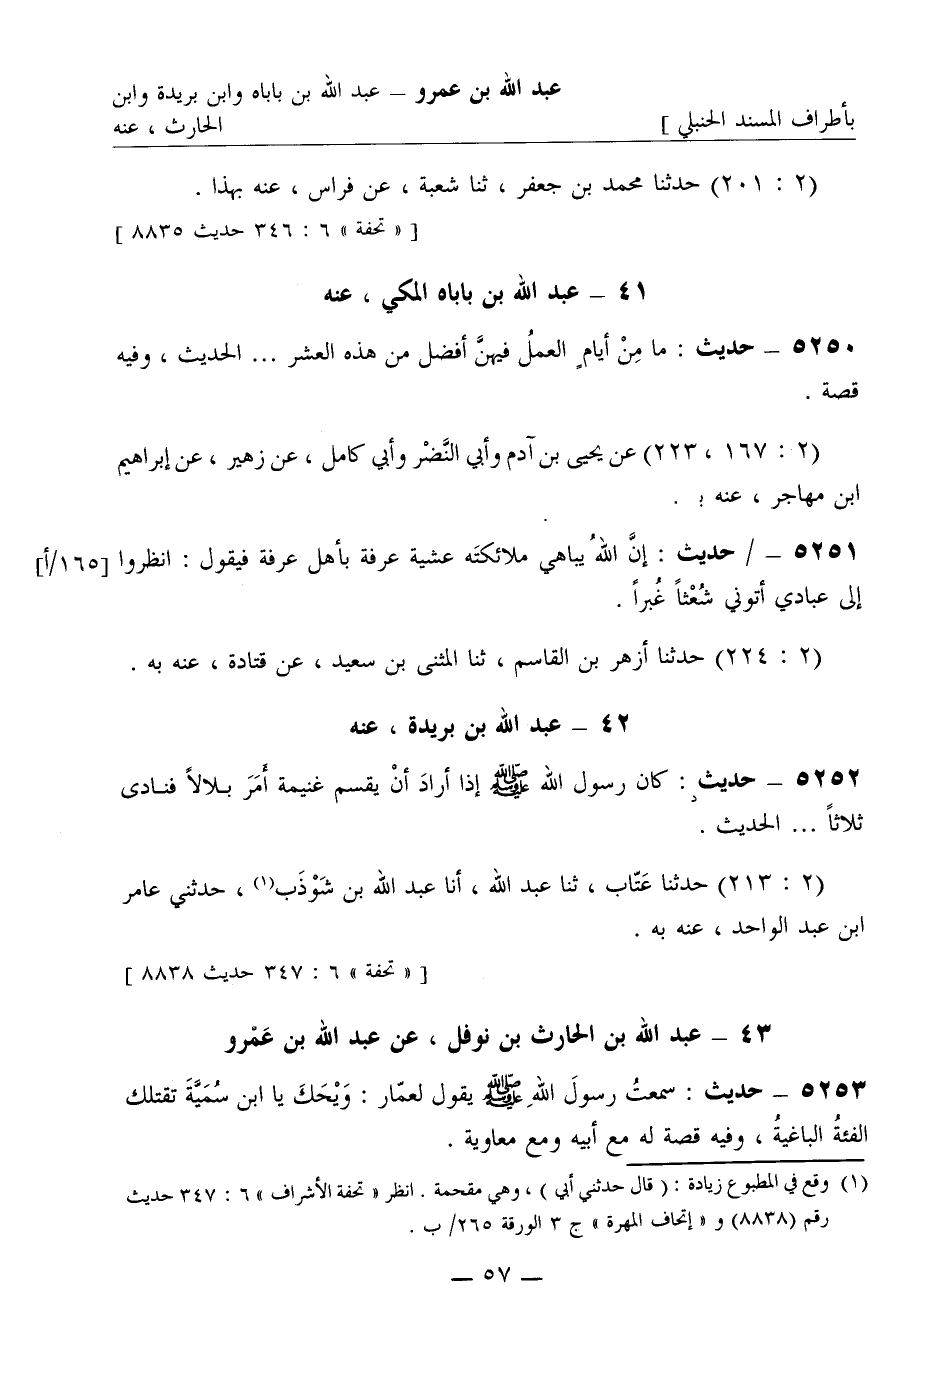 عبد الله بن عمرو – عبد الله بن باباه وابن بريدة وابن
بأطراف المسند الحنبلي ] الحارث ، عنه
(٢ : ٢٠١) حدثنا محمد بن جعفر ، ثنا شعبة ، عن فراس ، عنه بهذا .
[ « تحفة » ٦ : ٣٤٦ حديث ٨٨٣٥ ]
٤١ – عبد الله بن باباه المكي ، عنه
٥٢٥٠ – حديث : ما مِنْ أيامٍ العملُ فيهنَّ أفضل من هذه العشر ... الحديث ، وفيه
قصة .
(٢ : ١٦٧ ، ٢٢٣) عن يحيى بن آدم وأبي النَّضْر وأبي كامل ، عن زهير ، عن إبراهيم
ابن مهاجر ، عنه به .
٥٢٥١ – / حديث : إنَّ اللهُ يباهي ملائكتَه عشية عرفة بأهل عرفة فيقول : انظروا [١٦٥/أ]
إلى عبادي أتوني شُعْثاً غُبراً .
(٢ : ٢٢٤) حدثنا أزهر بن القاسم ، ثنا المثنى بن سعيد ، عن قتادة ، عنه به .
٤٢ – عبد الله بن بريدة ، عنه
٥٢٥٢ – حديث : كان رسول الله ﷺ إذا أرادَ أنْ يقسم غنيمة أَمَرَ بلالاً فنادى
ثلاثاً ... الحديث .
(٢ : ٢١٣) حدثنا عَتّاب ، ثنا عبد الله ، أنا عبد الله بن شَوْذَب(١) ، حدثني عامر
ابن عبد الواحد ، عنه به .
[ « تحفة » ٦ : ٣٤٧ حديث ٨٨٣٨ ]
٤٣ – عبد الله بن الحارث بن نوفل ، عن عبد الله بن عَمْرو
٥٢٥٣ – حديث : سمعتُ رسولَ اللهِ ﷺ يقول لعمّار : وَيْحَكَ يا ابن سُمَيَّةَ تقتلك
الفئةُ الباغيةُ ، وفيه قصة له مع أبيه ومع معاوية .
(١) وقع في المطبوع زيادة : ( قال حدثني أبي ) ، وهي مقحمة . انظر « تحفة الأشراف » ٦ : ٣٤٧ حديث
رقم (٨٨٣٨) و « إتحاف المهرة » ج ٣ الورقة ٢٦٥/ ب .
– ٥٧ –